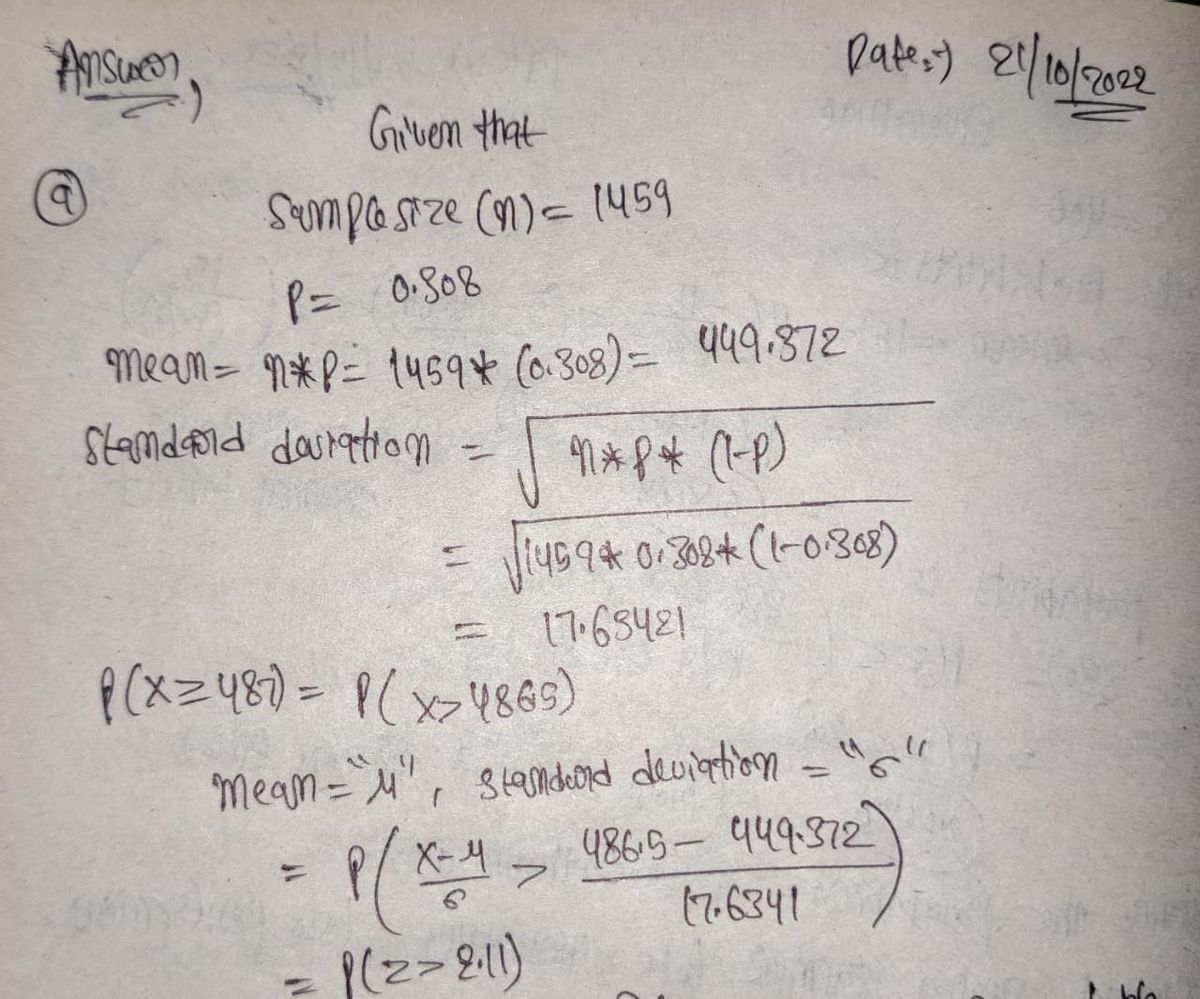 Answer,
Date:-) 21/10/2022
Given that
(a)
Sample size (n) = 1459
P = 0.308
mean = n*P = 1459 * (0.308) = 449.372
Standard daviation = √n*p* (1-P)
= √1459* 0.308* (1-0.308)
= 17.63421
P(X≥487) = P( X>486.5)
mean = "μ", standard deviation = "σ"
= P( X-μ / σ > 486.5 - 449.372 / 17.6341 )
= P(Z > 2.11)